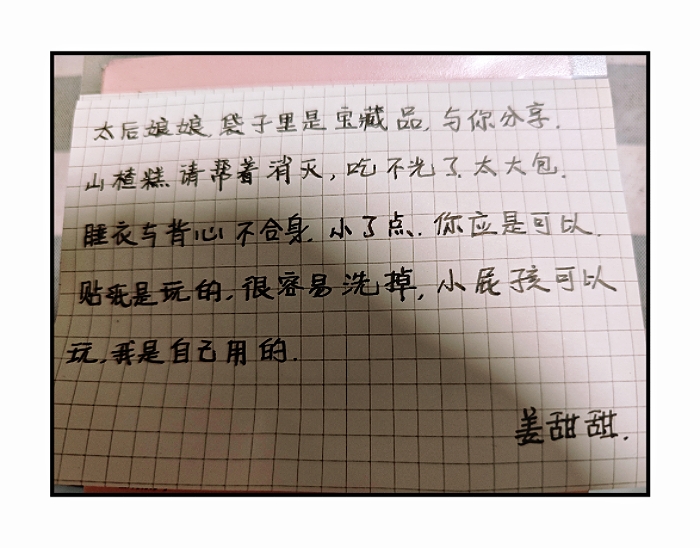 太后娘娘.袋子里是宝藏品,与你分享.
山楂糕请帮着消灭,吃不光了太大包.
睡衣与背心不合身.小了点.你应是可以.
贴纸是玩的,很容易洗掉,小屁孩可以
玩,我是自己用的.
姜甜甜.